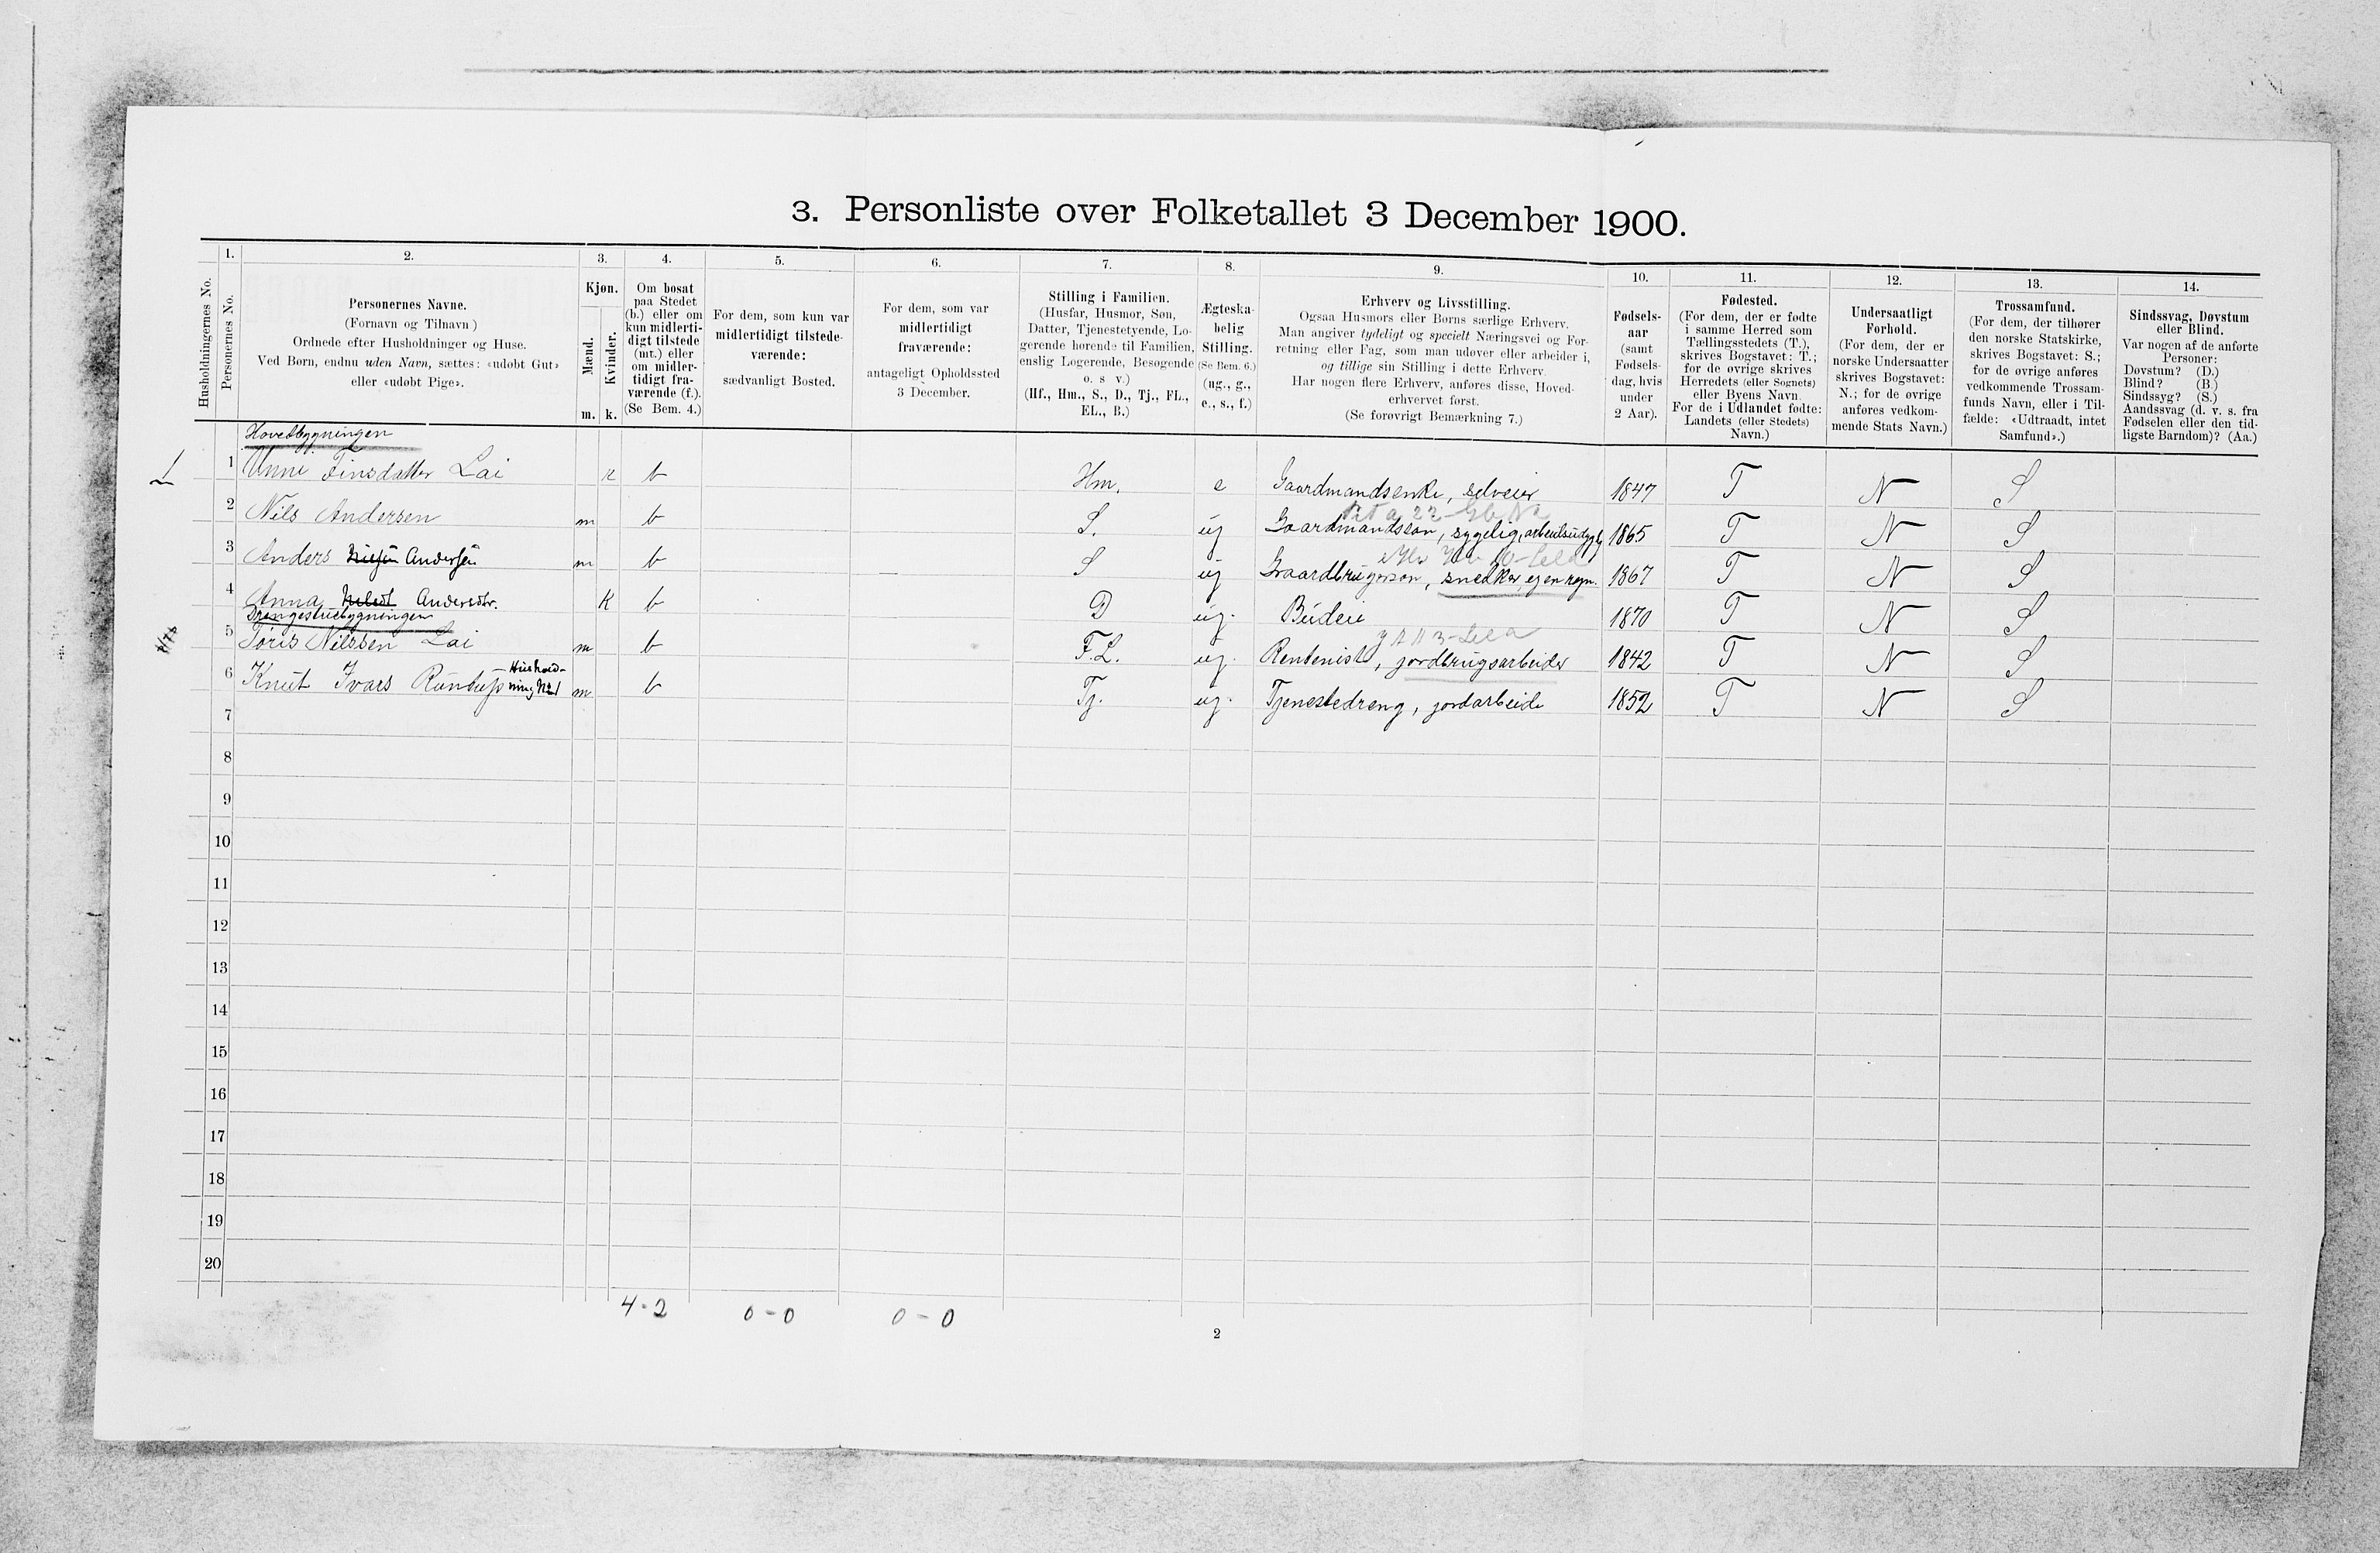 3. Personliste over Folketallet 3 December 1900.
1. 2. 3. 4. 5. 6. 7. 8. 9. 10. 11. 12. 13. 14.
Husholdningernes No.
Personernes No.
Personernes Navne.
(Fornavn og Tilnavn)
Ordnede efter Husholdninger og Huse.
Ved Børn, endnu uden Navn, sættes: «udøbt Gut»
eller «udøbt Pige».
Kjøn.
Mænd.
Kvinder.
m. k.
Om bosat
paa Stedet
(b.) eller om
kun midlerti-
digt tilstede
(mt.) eller
om midler-
tidigt fra-
værende (f.).
(Se Bem. 4.)
For dem, som kun var
midlertidigt tilstede-
værende:
sædvanligt Bosted.
For dem, som var
midlertidigt
fraværende:
antageligt Opholdssted
3 December.
Stilling i Familien.
(Husfar, Husmor, Søn,
Datter, Tjenestetyende, Lo-
gerende hørende til Familien,
enslig Logerende, Besøgende
o. s v.)
(Hf., Hm., S., D., Tj., FL.,
EL., B.)
Ægteska-
belig
Stilling.
(Se Bem. 6.)
(ug., g.,
e., s., f.)
Erhverv og Livsstilling.
Ogsaa Husmors eller Børns særlige Erhverv.
Man angiver tydeligt og specielt Næringsvei og For-
retning eller Fag, som man udøver eller arbeider i,
og tillige sin Stilling i dette Erhverv.
Har nogen flere Erhverv, anføres disse, Hoved-
erhvervet først.
(Se forøvrigt Bemærkning 7.)
Fødsels-
aar
(samt
Fødsels-
dag, hvis
under
2 Aar).
Fødested.
(For dem, der er fødte
i samme Herred som
Tællingsstedets (T.),
skrives Bogstavet: T.;
for de øvrige skrives
Herredets (eller Sognets)
eller Byens Navn.
For de i Udlandet fødte:
Landets (eller Stedets)
Navn.)
Undersaatligt
Forhold.
(For dem, der er
norske Undersaatter
skrives Bogstavet:
N.; for de øvrige
anføres vedkom-
mende Stats Navn.)
Trossamfund.
(For dem, der tilhører
den norske Statskirke,
skrives Bogstavet: S.;
for de øvrige anføres
vedkommende Trossam-
funds Navn, eller i Til-
fælde: «Udtraadt, intet
Samfund».)
Sindssvag, Døvstum
eller Blind.
Var nogen af de anførte
Personer:
Døvstum? (D.)
Blind? (B.)
Sindssyg? (S.)
Aandssvag (d. v. s. fra
Fødselen eller den tid-
ligste Barndom)? (Aa.)
Hovedbygningen
1 1 Anne Finsdatter Lai k b Hm. e Gaardmandsenke, selveier 1847 T N S
2 Nils Andersen m b S. ug Gaardmandssøn, sygelig, arbeidsudygtig 1865 T N S
3 Anders Andersen m b S ug Gaardbrugersøn, snedker, egen regn. 1867 T N S
4 Anna Andersdtr. k b D ug. Budeie 1870 T N S
Drengestuebygningen
5 Nilssen Lai m b F.L. ug. Rentenist, jordbrugsarbeider 1842 T N S
6 Knut Ivars Hushold-
ning No 1 m b Tj. ug. Tjenestedreng, jordarbeide 1852 T N S
7
8
9
10
11
12
13
14
15
16
17
18
19
20
4-2 0-0 0-0
2